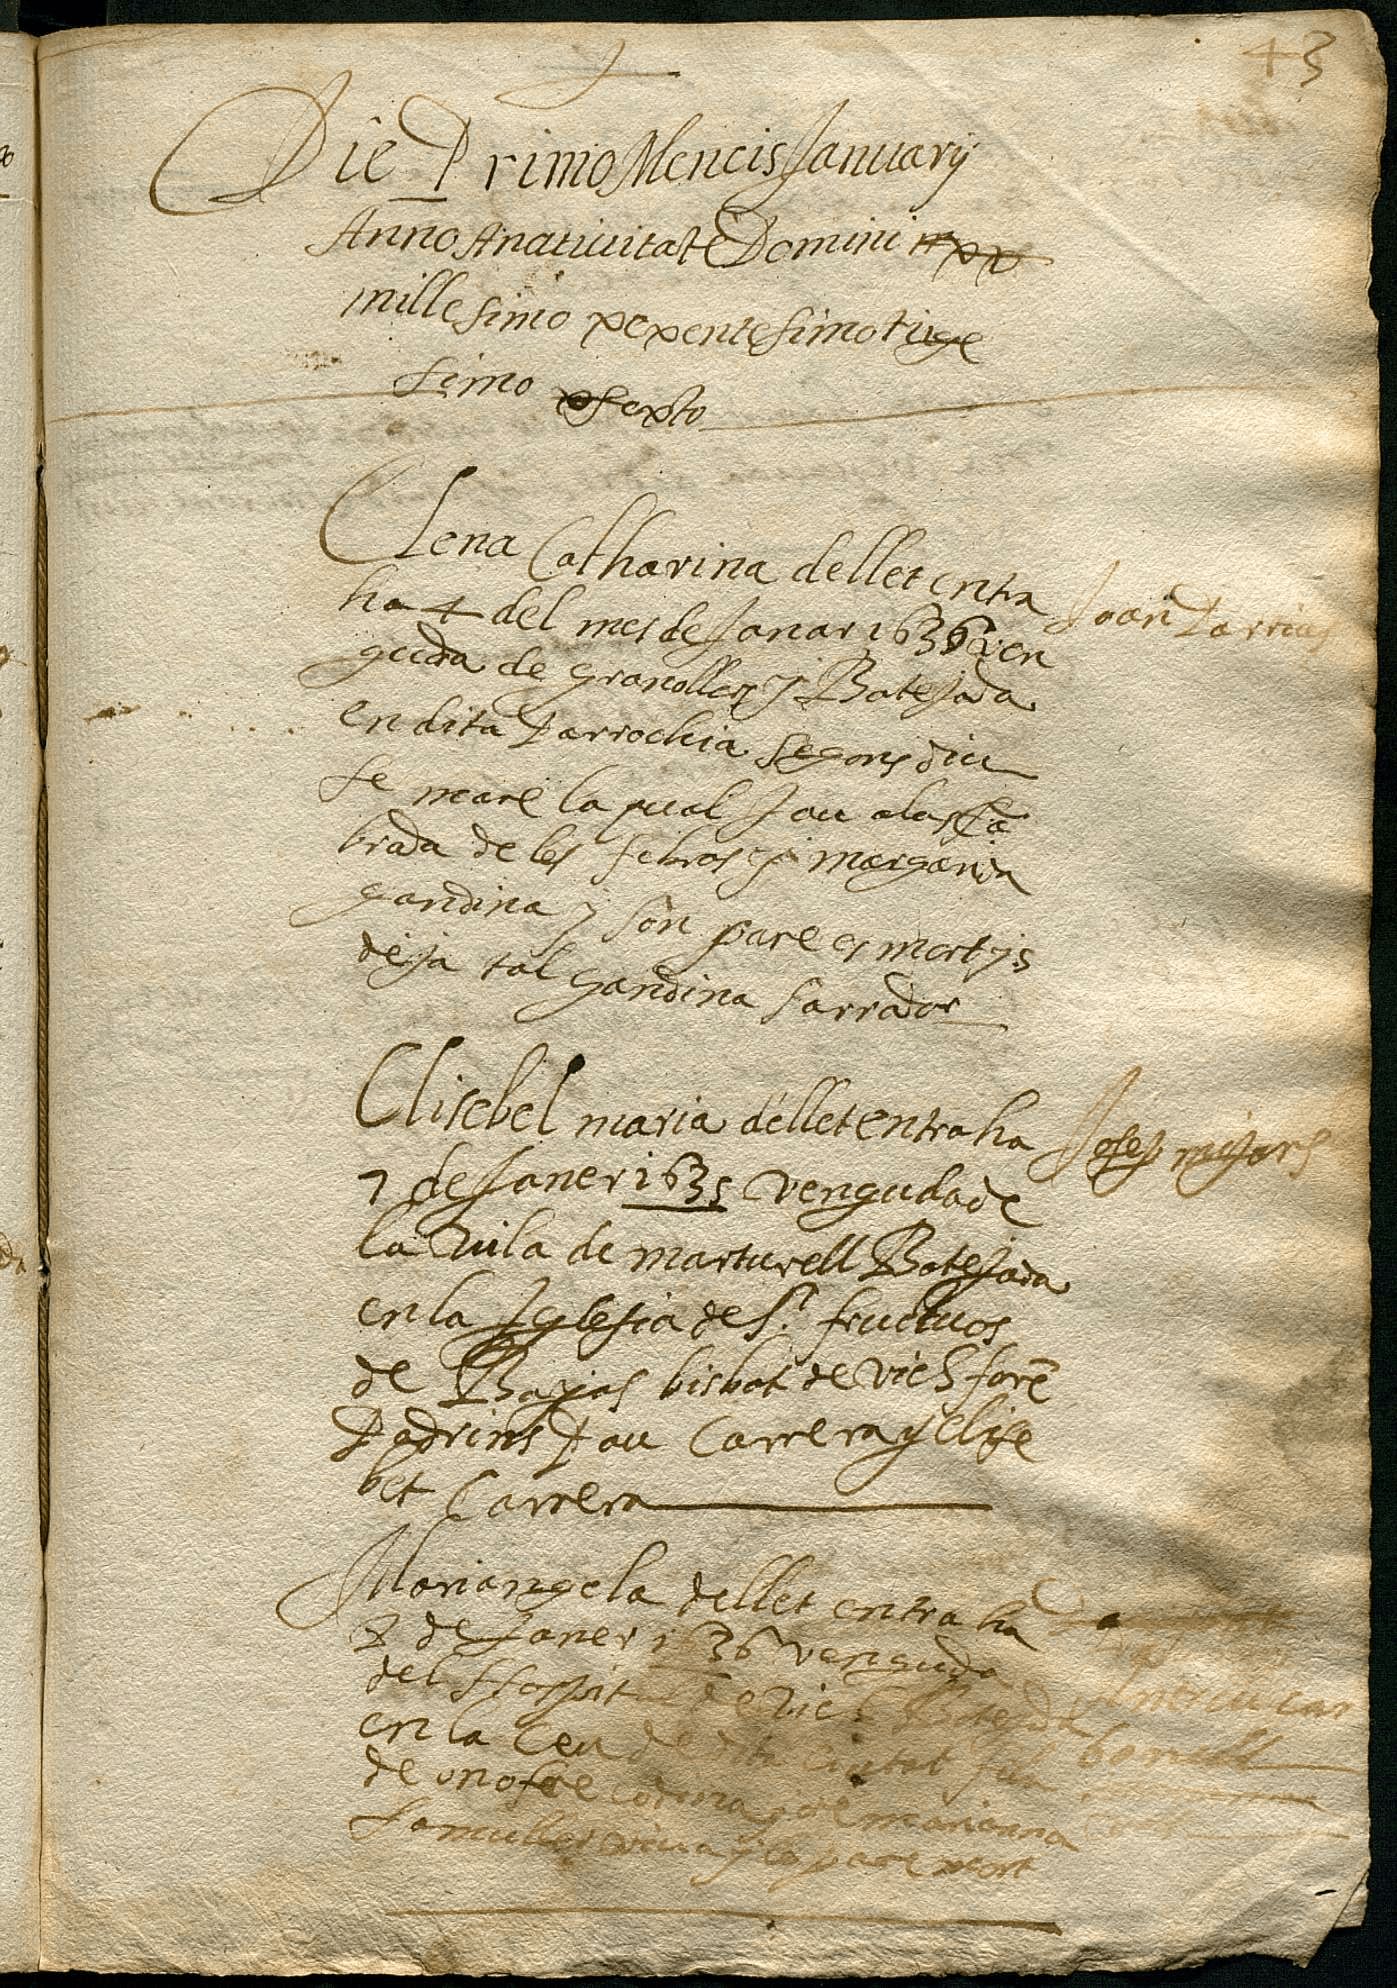 43
Die Primo Mencis Januarij
Anno Anativitate Domini
millesimo xexentesimo trige
simo sexto
Elena Catharina dellet entra
ha 4 del mes de Janar 1636 ven
guda de granollers y Batejada
en dita Parrochia segons diu
se mare la qual Jau alas
brada de les febros y margarida
gandina y son pare es mort y s
deja tal gandina sarrador
Joan Parrius
Elisebel maria dellet entra ha
7 de Janer 1635 venguda de
la vila de marturell Batejada
en la Iglesia de St. fructuos
de Bages bisbat de vich foré
Padrins Pau Carrera y Elise
bet Carrera
Josep mijars
Mariangela dellet entra ha
8 de Janer 1636 venguda
del Hospital de Vich Batejada
en la Ceu de dita Ciutat filla
de onofre Codina y de marianna
sa muller viuda y lo pare mort
bonell